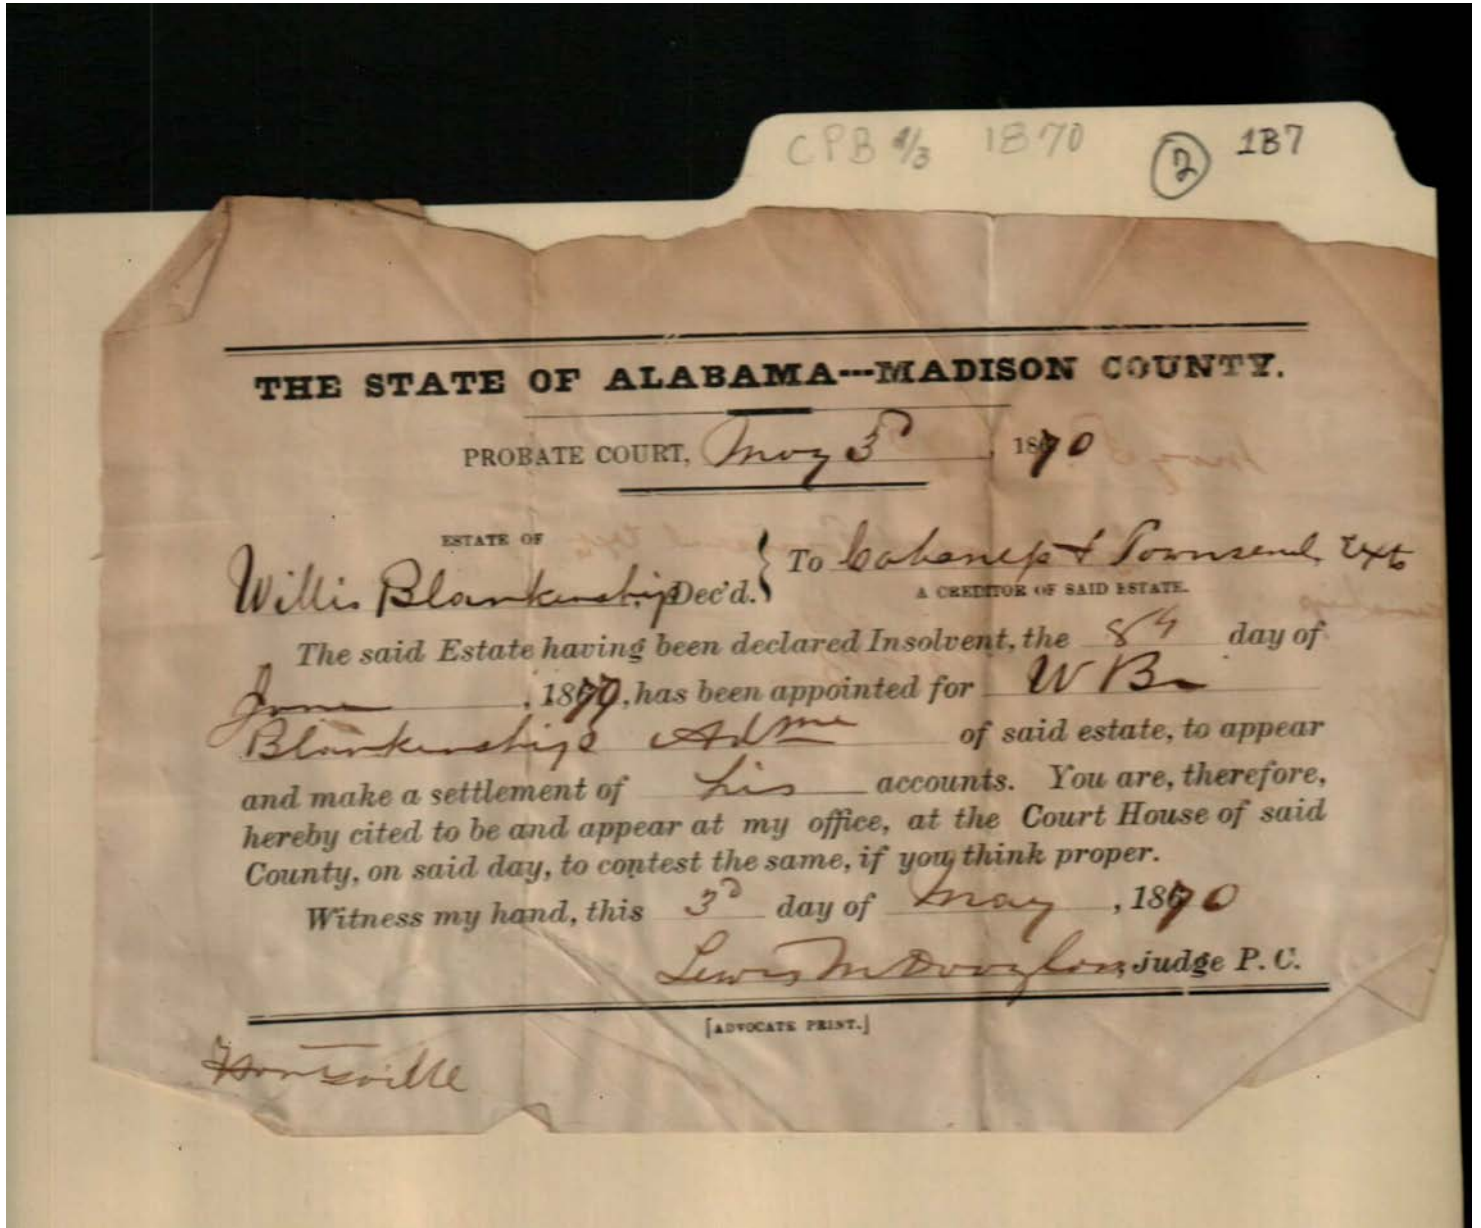 CPB 1/3 1870 2 187
THE STATE OF ALABAMA---MADISON COUNTY.
PROBATE COURT, May 3d 1870
ESTATE OF
Willis Blankenship Dec'd. } To Cabaness & Townsend, Exts
A CREDITOR OF SAID ESTATE.
The said Estate having been declared Insolvent, the 8th day of
June, 1870, has been appointed for W B
Blankenship Adm of said estate, to appear
and make a settlement of his accounts. You are, therefore,
hereby cited to be and appear at my office, at the Court House of said
County, on said day, to contest the same, if you think proper.
Witness my hand, this 3d day of May, 1870
Lewis M Douglass, Judge P. C.
[ADVOCATE PRINT.]
Huntsville